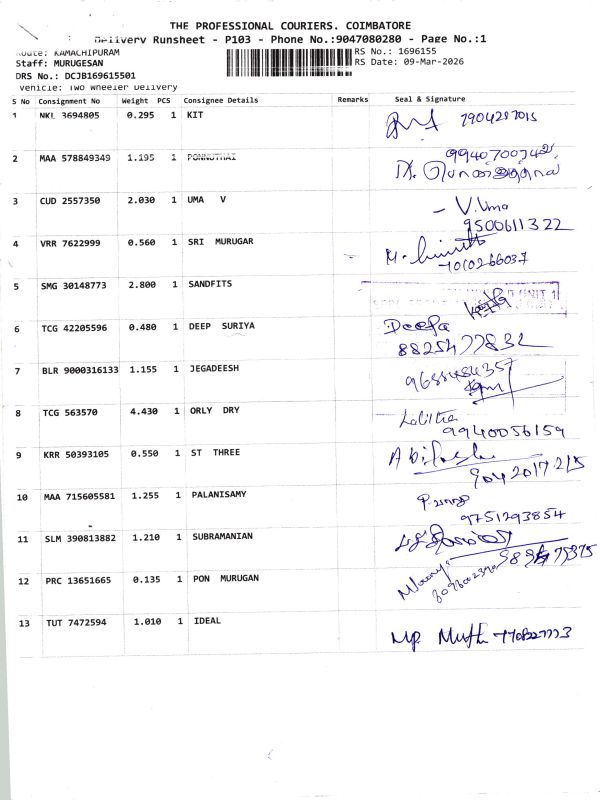 THE PROFESSIONAL COURIERS. COIMBATORE
Delivery Runsheet - P103 - Phone No.:9047080280 - Page No.:1
Route: KAMACHIPURAM
RS No.: 1696155
Staff: MURUGESAN
RS Date: 09-Mar-2026
DRS No.: DCJB169615501
Vehicle: Two Wheeler Delivery
S No Consignment No Weight PCS Consignee Details Remarks Seal & Signature
1 NKL 3694805 0.295 1 KIT
2 MAA 578849349 1.195 1 PONNUTHAI
3 CUD 2557350 2.030 1 UMA V
- V. Uma
9500611322
4 VRR 7622999 0.560 1 SRI MURUGAR
5 SMG 30148773 2.800 1 SANDFITS
6 TCG 42205596 0.480 1 DEEP SURIYA
Deepa
8825477832
7 BLR 9000316133 1.155 1 JEGADEESH
9688484357
8 TCG 563570 4.430 1 ORLY DRY
Lalitha
9940056159
9 KRR 50393105 0.550 1 ST THREE
9042017215
10 MAA 715605581 1.255 1 PALANISAMY
9751293854
11 SLM 390813882 1.210 1 SUBRAMANIAN
12 PRC 13651665 0.135 1 PON MURUGAN
13 TUT 7472594 1.010 1 IDEAL